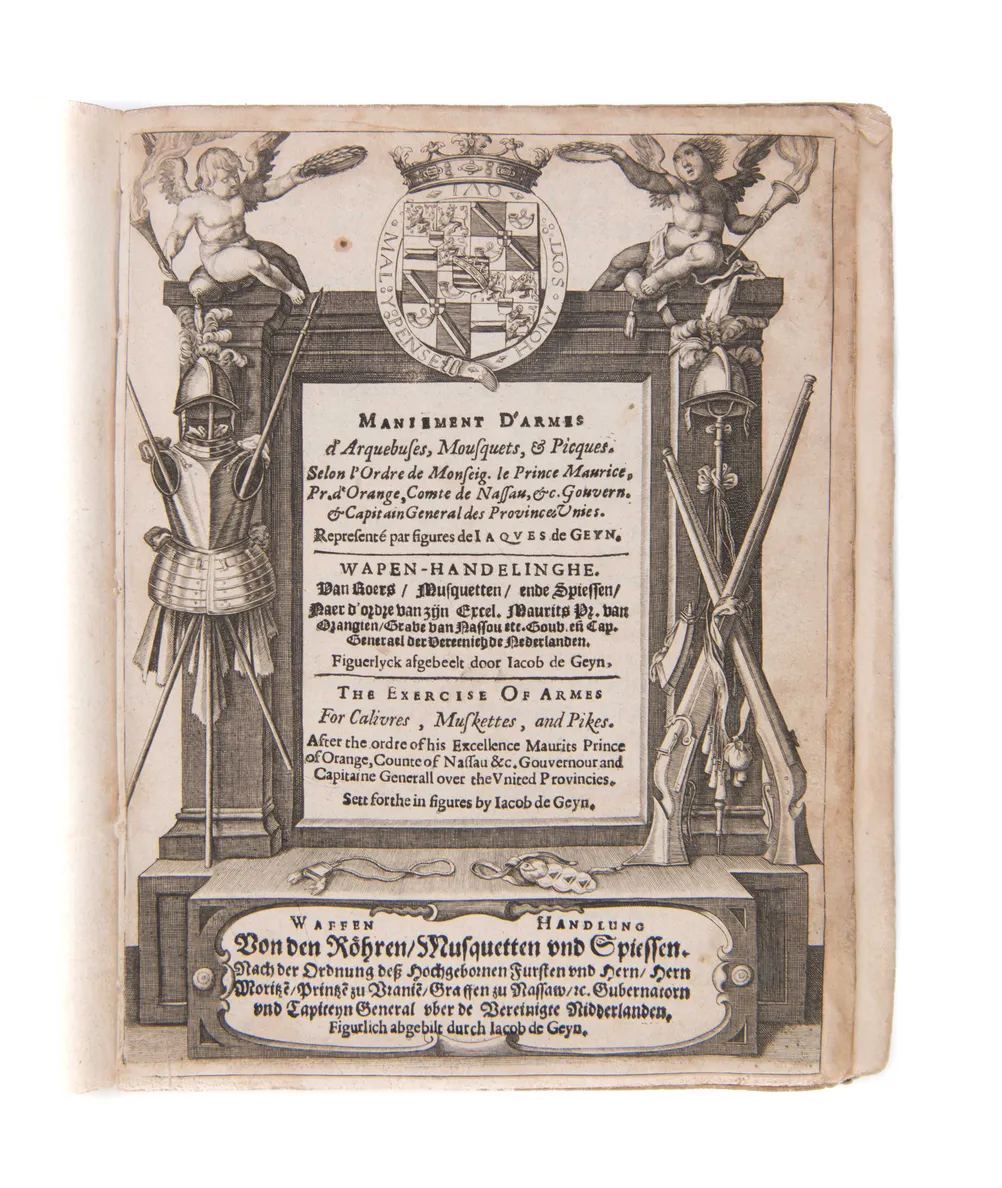 HONY · SOYT · QVI · MAL · Y · PENSE
MANIEMENT D'ARMES
d'Arquebuſes, Mouſquets, & Picques.
Selon l'Ordre de Monſeig. le Prince Maurice,
Pr. d'Orange, Comte de Naſſau, &c. Gouvern.
& Capitain General des Provinces Vnies.
Repreſenté par figures de IAQVES de GEYN.
WAPEN-HANDELINGHE.
Van Roers / Muſquetten / ende Spieſſen/
Naer d'ordre van zijn Excel. Maurits Pr. van
Orangien/Grave van Naſſou etc. Gouv. eñ Cap.
Generael der Vereenichde Nederlanden.
Figuerlyck afgebeelt door Iacob de Geyn,
THE EXERCISE OF ARMES
For Calivres , Muſkettes , and Pikes.
After the ordre of his Excellence Maurits Prince
of Orange, Counte of Naſſau &c. Gouvernour and
Capitaine Generall over the Vnited Provincies.
Sett forthe in figures by Iacob de Geyn.
WAFFEN HANDLUNG
Von den Röhren/Muſquetten vnd Spieſſen.
Nach der Ordnung deß Hochgebornen Furſten vnd Hern/ Hern
Moritzē/Printzē zu Vraniē/Graffen zu Naſſaw/ꝛc. Gubernatorn
vnd Capiteyn General vber de Vereinigte Nidderlanden.
Figurlich abgebilt durch Iacob de Geyn.